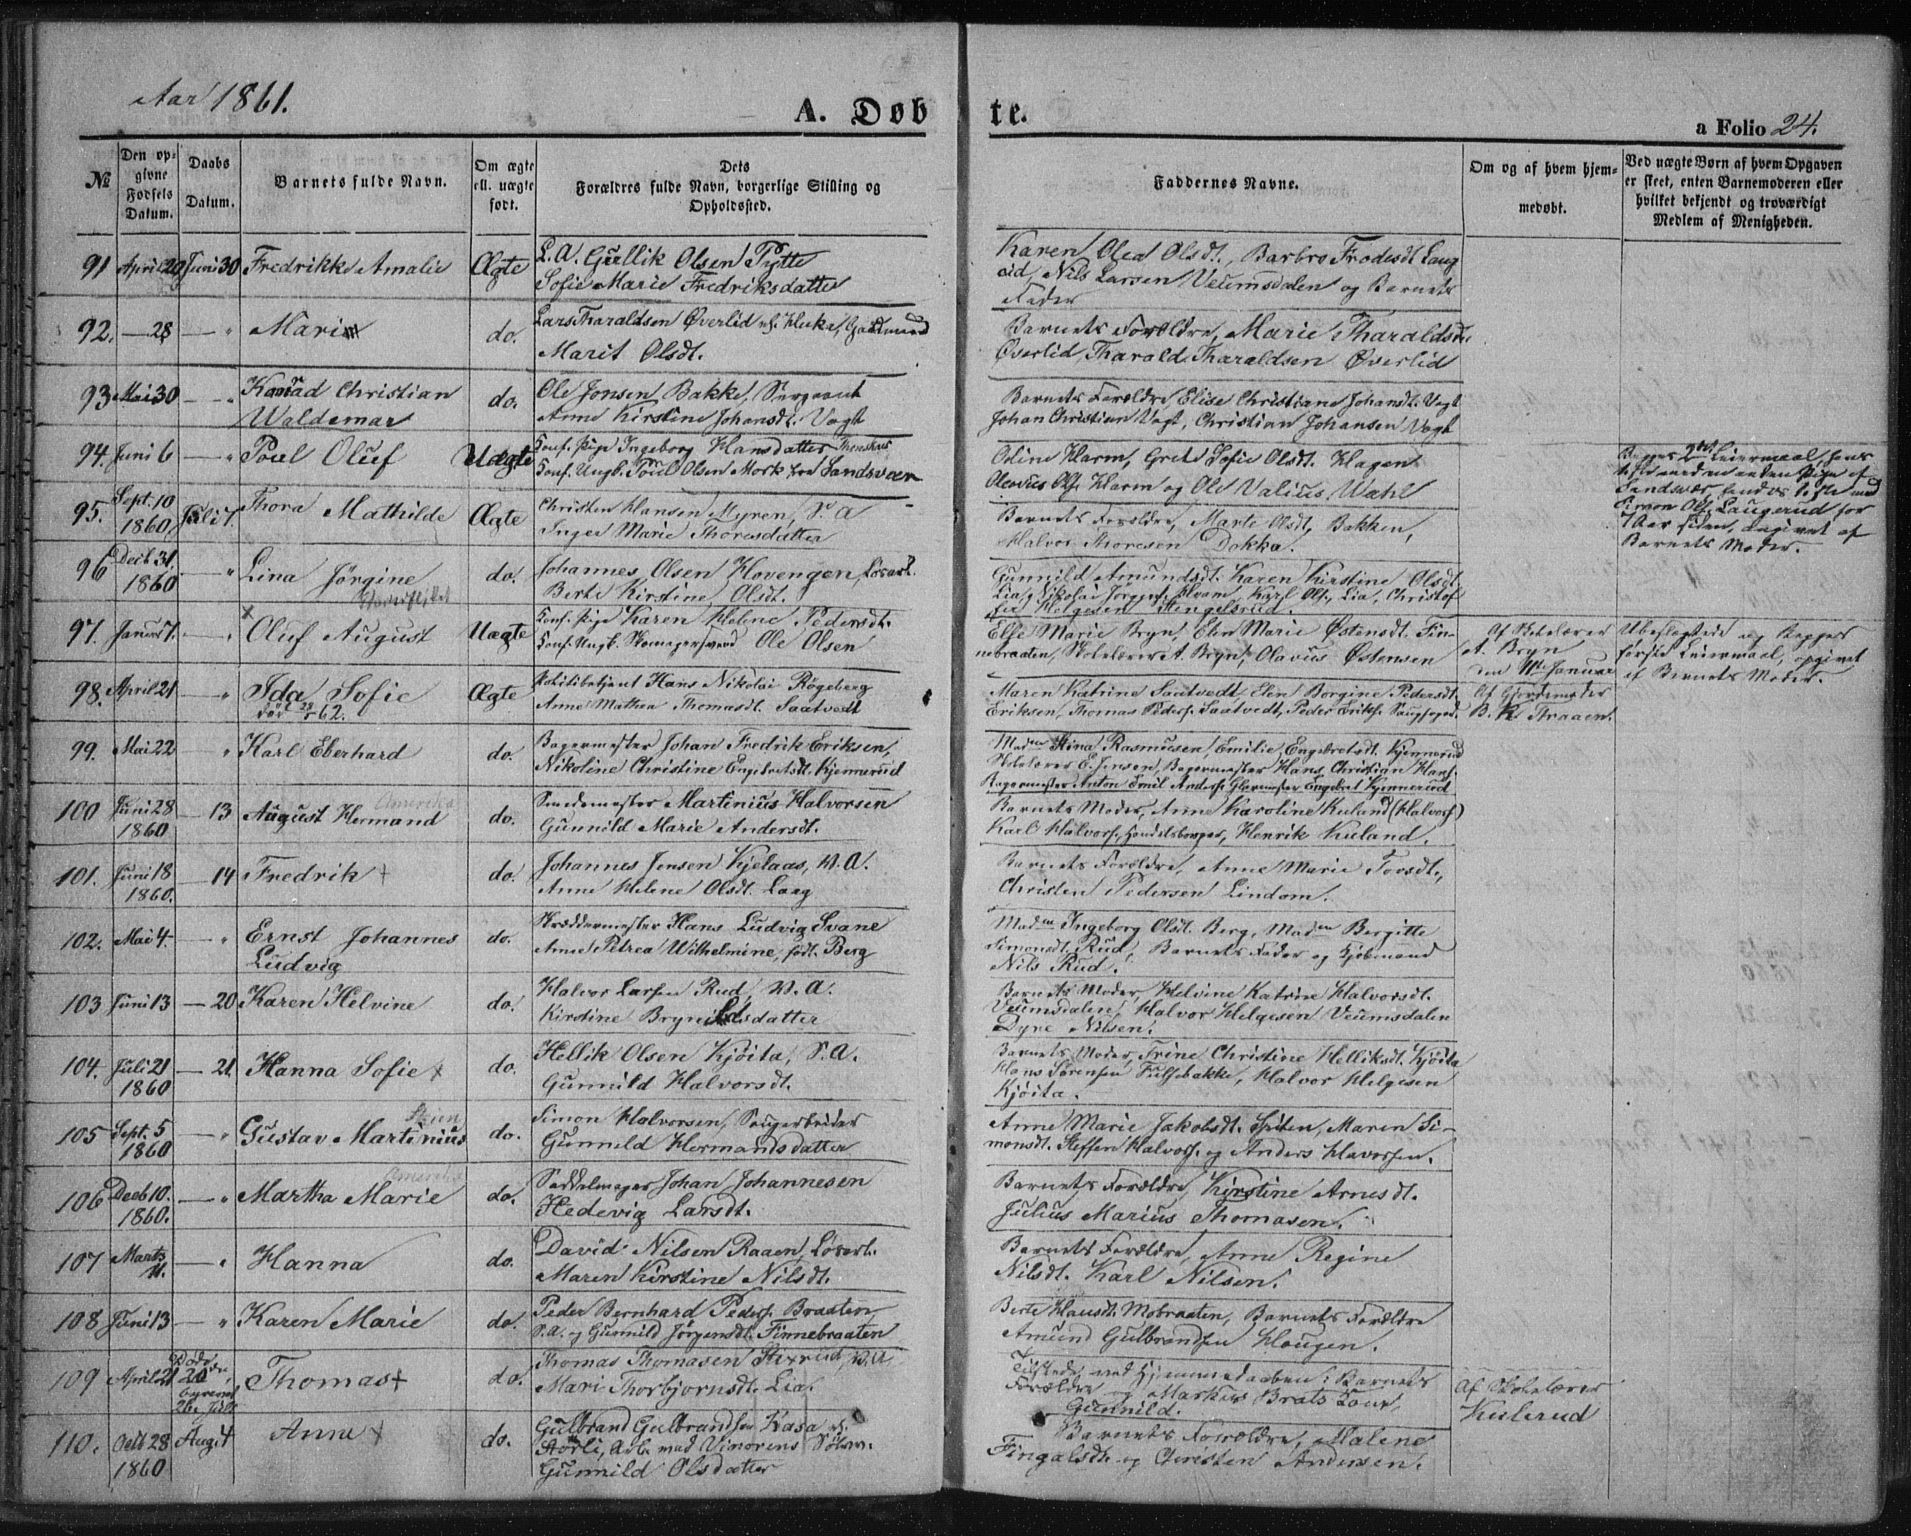 Aar 1861.
A. Døbte.
a Folio 24.
No
Den opgivne Fødsels Datum.
Daabs Datum.
Barnets fulde Navn.
Om ægte ell. uægte født.
Dets Forældres fulde Navn, borgerlige Stilling og Opholdssted.
Faddernes Navne.
Om og af hvem hjemmedøbt.
Ved uægte Børn af hvem Opgaven er skeet, enten Barnemoderen eller hvilket bekjendt og troværdigt Medlem af Menigheden.
91 April 20 Juni 30 Fredrikke Amalie Ægte L.A. Gullik Olsen Pytte
Sofie Marie Fredriksdatter
Karen Olea Olsdt., Barbro Frodesdt. Laugerud, Nils Larsen Veumsdalen og Barnets
Fader
92. — 28 — " Mari do. Lars Tharaldsen Øverlid, Gaardmand
Marit Olsdt.
Barnets Forældre, Marie Tharaldsdt.
Øverlid, Tharald Tharaldsen Øverlid
93 Mai 30 — " Konrad Christian
Waldemar
do. Ole Jonsen Bakke, Sergeant
Anne Kirstine Johansdt. Vogt
Barnets Forældre, Elise Christiane Johansdt. Vogt
Johan Christian Vogt, Christian Johansen Vogt
94. Juni 6 — " Poul Oluf Uægte Conf. Pige Ingeborg Hansdatter
Conf. Ungk. Poul Olsen Mork fra Sandsvær
Oline Harm, Grete Sofie Olsdt. Hagen
Olavus Ols. Harm og Ole Valius Wahl
Begges 2det Leiermaal, hans
Sandsvær, hendes første med
Simon Ols. Laugerud for
7 Aar siden, angivet af
Barnets Moder.
95. Sept. 10
1860 Juli 7. Thora Mathilde Ægte Christen Hansen Myren, S.A
Inger Marie Thoresdatter
Barnets Forældre, Marte Olsdt. Bakken,
Halvor Thoresen Dokka.
96 Decb 31.
1860 — " Lina Jørgine do. Johannes Olsen Hovengen Løsarb.
Berte Kirstine Olsdt.
Gunnild Amundsdt. Karen Kirstine Olsdt.
Lia, Nikolai Jørgens. Hvam, Karl Ols. Lia, Christoffer Helgesen Hengelsrud.
97. Januar 7. — " Oluf August Uægte Conf. Pige Karen Helene Pedersdt.
Conf. Ungk. Skomagersvend Ole Olsen
Else Marie Bryn, Elen Marie Østensdt. Finnebraaten, Skolelærer A. Bryn, Olavus Østensen
Af Skolelærer
A. Bryn
den 11te Januar
Ubeslægtede og Begges
første Leiermaal, opgivet
af Barnets Moder.
98. April 21 — " Ida Sofie
død 28/5 62.
Ægte Politibetjent Hans Nikolai Røgeberg
Anne Mathea Thomasdt. Saatvedt
Maren Katrine Saatvedt, Elen Borgine Pedersdt.
Eriksen, Thomas Peders. Saatvedt, Peder Eriks.
Af Gjordemoder
B. K. Braaen.
99. Mai 22 — " Karl Eberhard do. Bagermester Johan Fredrik Eriksen,
Nikoline Christine Engebretsdt. Kjennerud
Madm Stina Rasmussen, Emilie Engebretsdt. Kjennerud
Skolelærer E. Jensen, Bagermester Hans Christian Hans.
Bagermester Anton Emil Anders. Glarmester Engebret Kjennerud
100 Juni 28
1860 — 13 August Hermand Amerika do. Smedemester Martinius Halvorsen
Gunnild Marie Andersdt.
Barnets Moder, Anne Karoline Kuland (Halvors.)
Karl Halvors. Handelsborger, Henrik Kuland.
101. Juni 18
1860. — 14 Fredrik + do. Johannes Jensen Kjelaas, V.A.
Anne Helene Olsdt. Laag
Barnets Forældre, Anne Marie Tovsdt.,
Christen Pedersen Lindom.
102. Mai 4. — " Ernst Johannes
Ludvig
do. Skræddermester Hans Ludvig Svane
Anne Petrea Wilhelmine, født Berg
Madm Ingeborg Olsdt. Berg, Madm Bergitte
Simonsdt. Rud, Barnets Fader og Kjøbmand
Nils Rud.
103 Juni 13 — 20 Karen Helvine do. Halvor Larsen Rud, V.A.
Kirstine Brynildsdatter
Barnets Moder, Helvine Katrine Halvorsdt.
Veumsdalen, Halvor Helgesen Veumsdalen
Dyre Nilsen.
104. Juli 21
1860 — 21. Hanna Sofie + do. Hellik Olsen Kjøita, S.A.
Gunnild Halvorsdt.
Barnets Moder, Trine Christine Helliksdt. Kjøita
Hans Sørensen Fulsebakke, Halvor Helgesen
Kjøita.
105 Sept. 5
1860 — " Gustav Martinius Skien do. Simon Halvorsen, Saugarbeider
Gunnild Hermandsdatter
Anne Marie Jakobsdt. Spiten, Maren Simonsdt. Steffen Halvors. og Anders Havorsen.
106 Decb 10.
1860. — " Martha Marie Amerika do. Saddelmager Johan Johannesen
Hedevig Larsdt.
Barnets Forældre, Kirstine Arnesdt.
Julius Marius Thomasen.
107 Marts
11. — " Hanna do. David Nilsen Raaen, Løsarb.
Maren Kirstine Nilsdt.
Barnets Forældre, Anne Regine
Nilsdt. Karl Nilsen.
108 Juni 13 — " Karen Marie do. Peder Bernhard Peders. Braaten
S.A. og Gunnild Jørgensdt. Finnebraaten
Berte Hansdt. Mobraaten, Barnets Forældre
Amund Gulbrandsen Haugen.
109 April 21 Thomas + do. Thomas Thomasen Stixrud, V.A
Mari Thorbjørnsdt. Lia.
Tilstede ved Hjemmedaaben: Barnets
Forældre og Markus Brats
Gunnild.
Af Skolelærer
Kulerud
110. Octb 28
1860 Aug. 4 Anne + do. Gulbrand Gulbrandsen Kasa
Gunnild Olsdatter
Barnets Forældre, Malene
Fingalsdt. og Christen Andersen.